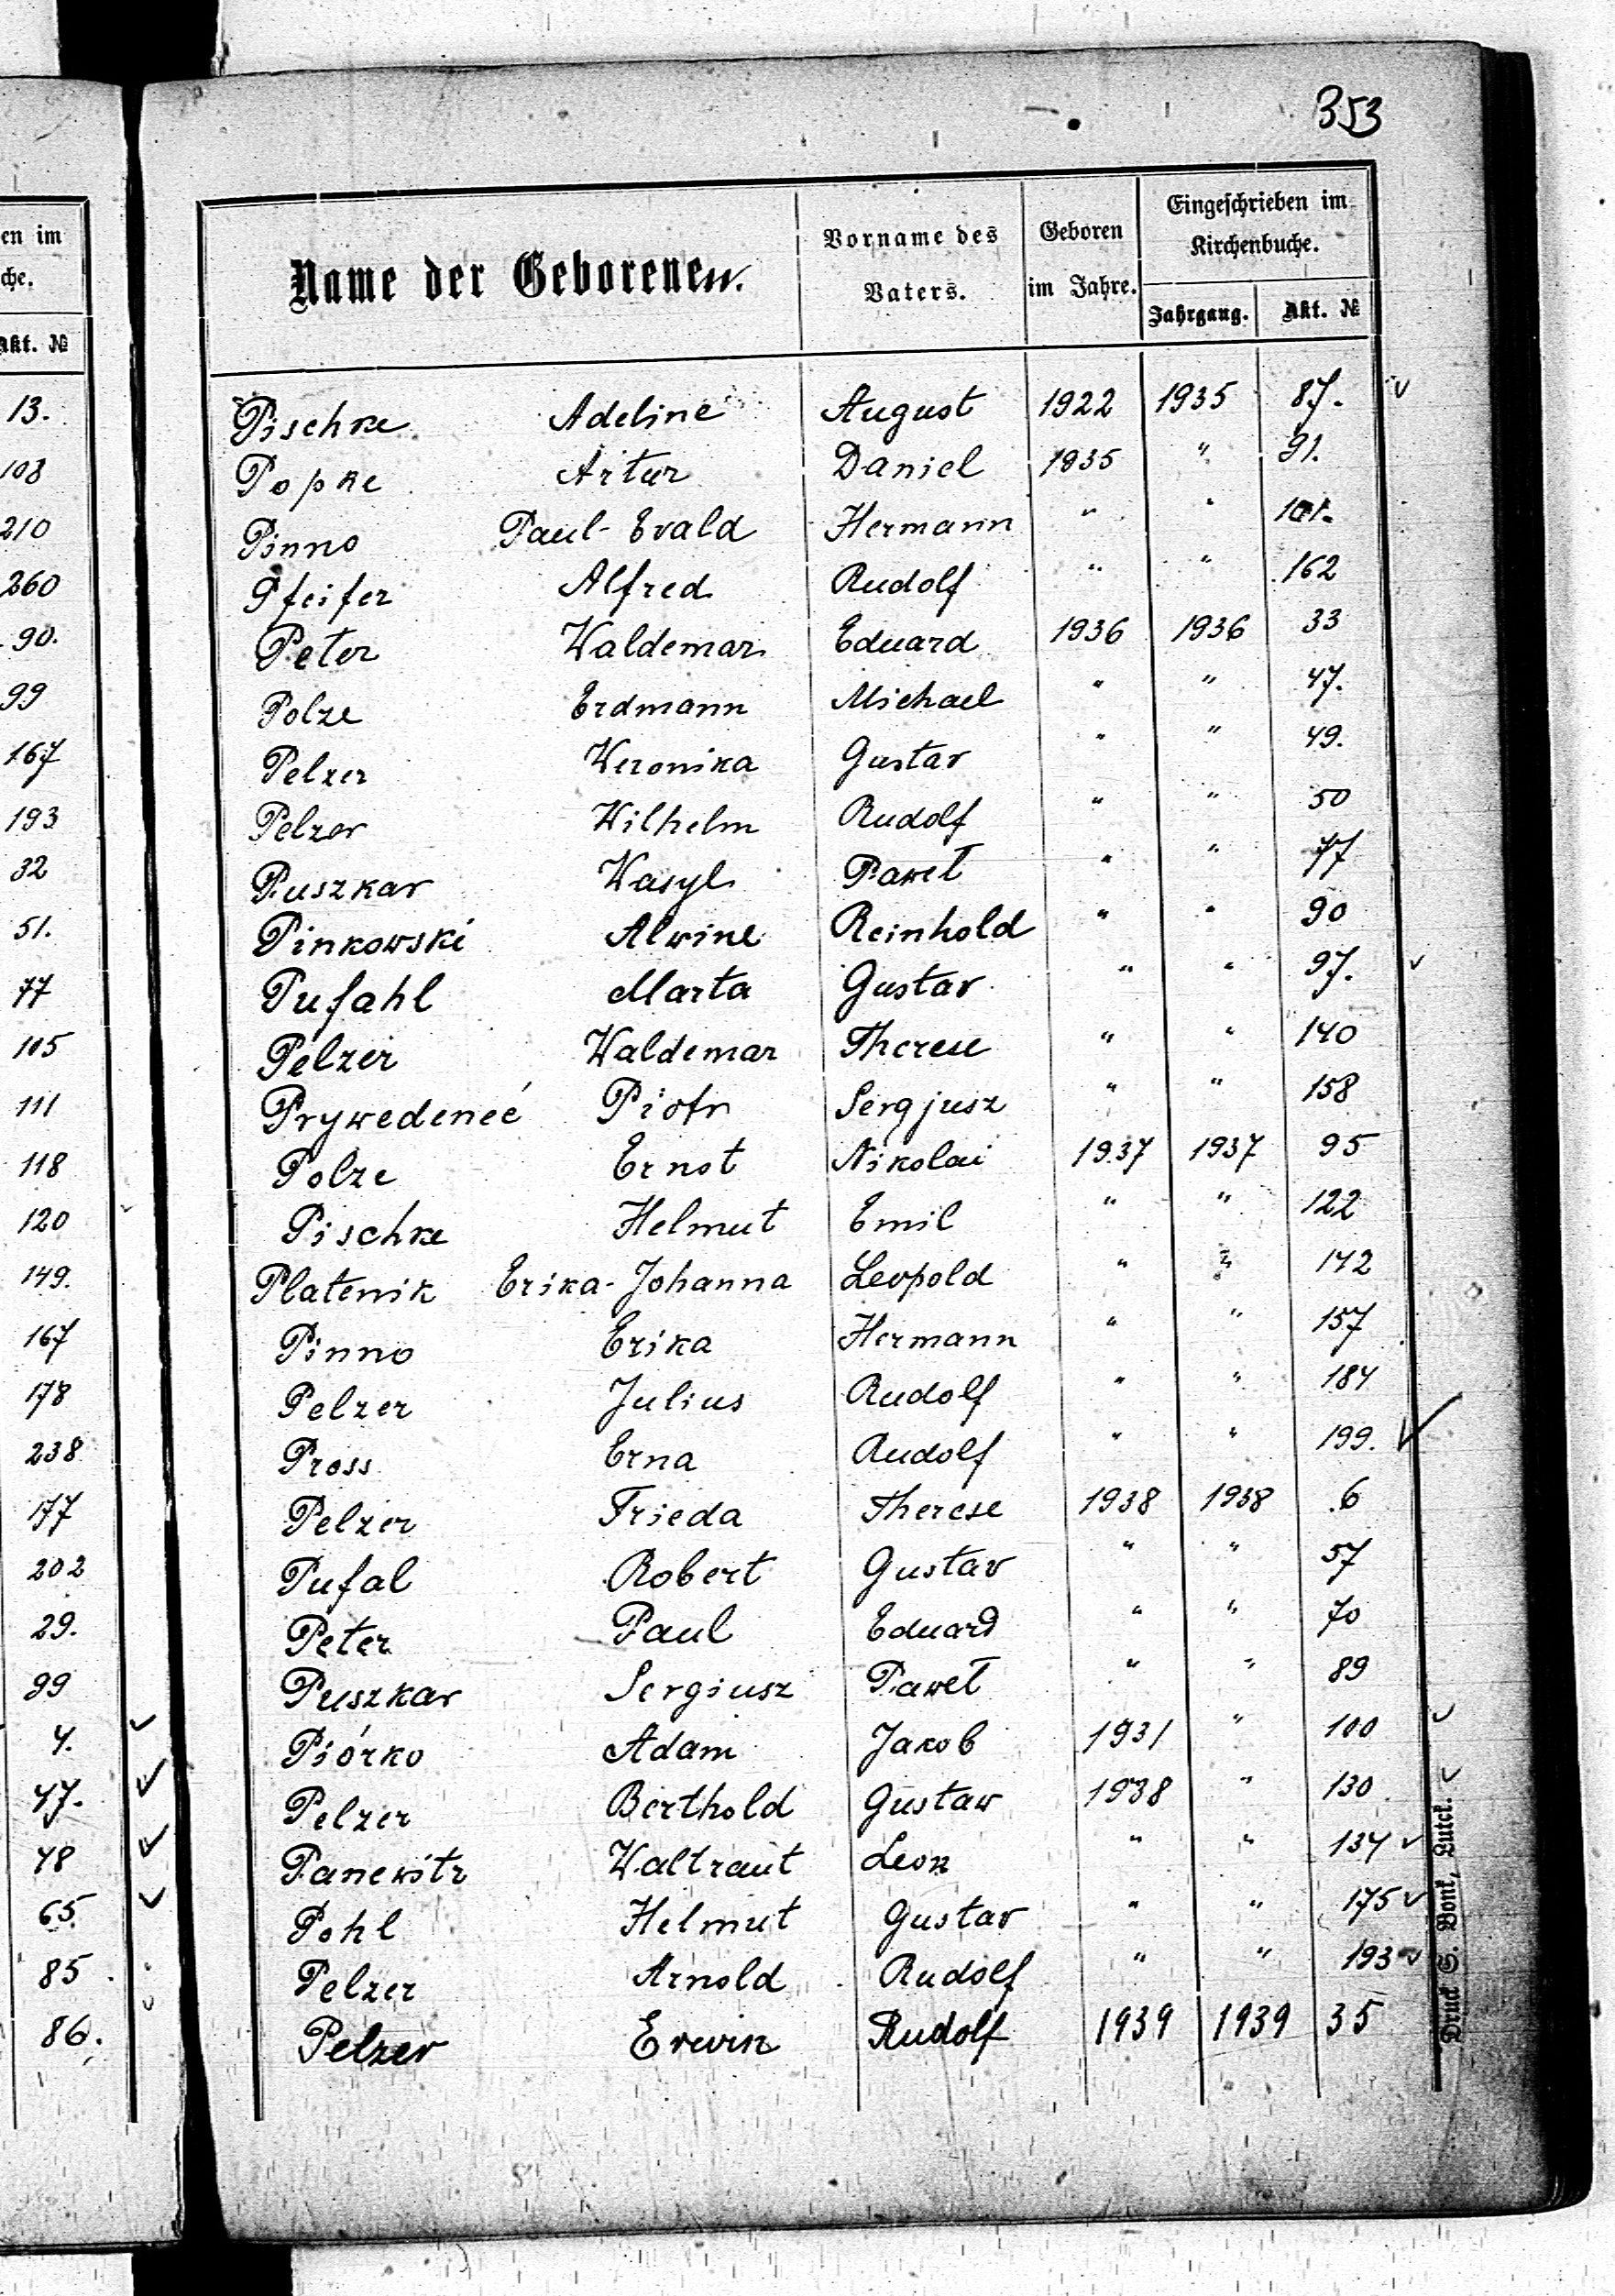 353
en im
che.
Akt. №
13.
108
210
260
90.
99
167
193
32
51.
77
105
111
118
120
149.
167
178
238
177
202
29.
99
4.
47.
48
65
85
86.
Name der Geborenen.
Vorname des Vaters.
Geboren im Jahre.
Eingeschrieben im Kirchenbuche.
Jahrgang. Akt. №
Pischke Adeline August 1922 1935 87.
Popke Artur Daniel 1935 " 91.
Pinno Paul-Evald Hermann " " 101.
Pfeifer Alfred Rudolf " " 162
Peter Waldemar Eduard 1936 1936 33
Polze Erdmann Michael " " 47.
Pelzer Weronika Gustav " " 49.
Pelzer Wilhelm Rudolf " " 50
Puszkar Wasyl Paweł " " 77
Pinkowski Alwine Reinhold " " 90
Pufahl Marta Gustav " " 97.
Pelzer Waldemar Therese " " 140
Prywedeneć Piotr Sergjusz " " 158
Polze Ernst Nikolai 1937 1937 95
Pischke Helmut Emil " " 122
Platenik Erika-Johanna Leopold " " 142
Pinno Erika Hermann " " 157
Pelzer Julius Rudolf " " 184
Pross Erna Rudolf " " 199.
Pelzer Frieda Therese 1938 1938 6
Pufal Robert Gustav " " 57
Peter Paul Eduard " " 70
Puszkar Sergiusz Paweł " " 89
Piórko Adam Jakob 1931 " 100
Pelzer Berthold Gustaw 1938 " 130
Panewitz Waltraut Leon " " 134
Pohl Helmut Gustav " " 175
Pelzer Arnold Rudolf " " 193
Pelzer Erwin Rudolf 1939 1939 35
Druck S. Bonk, Luck.